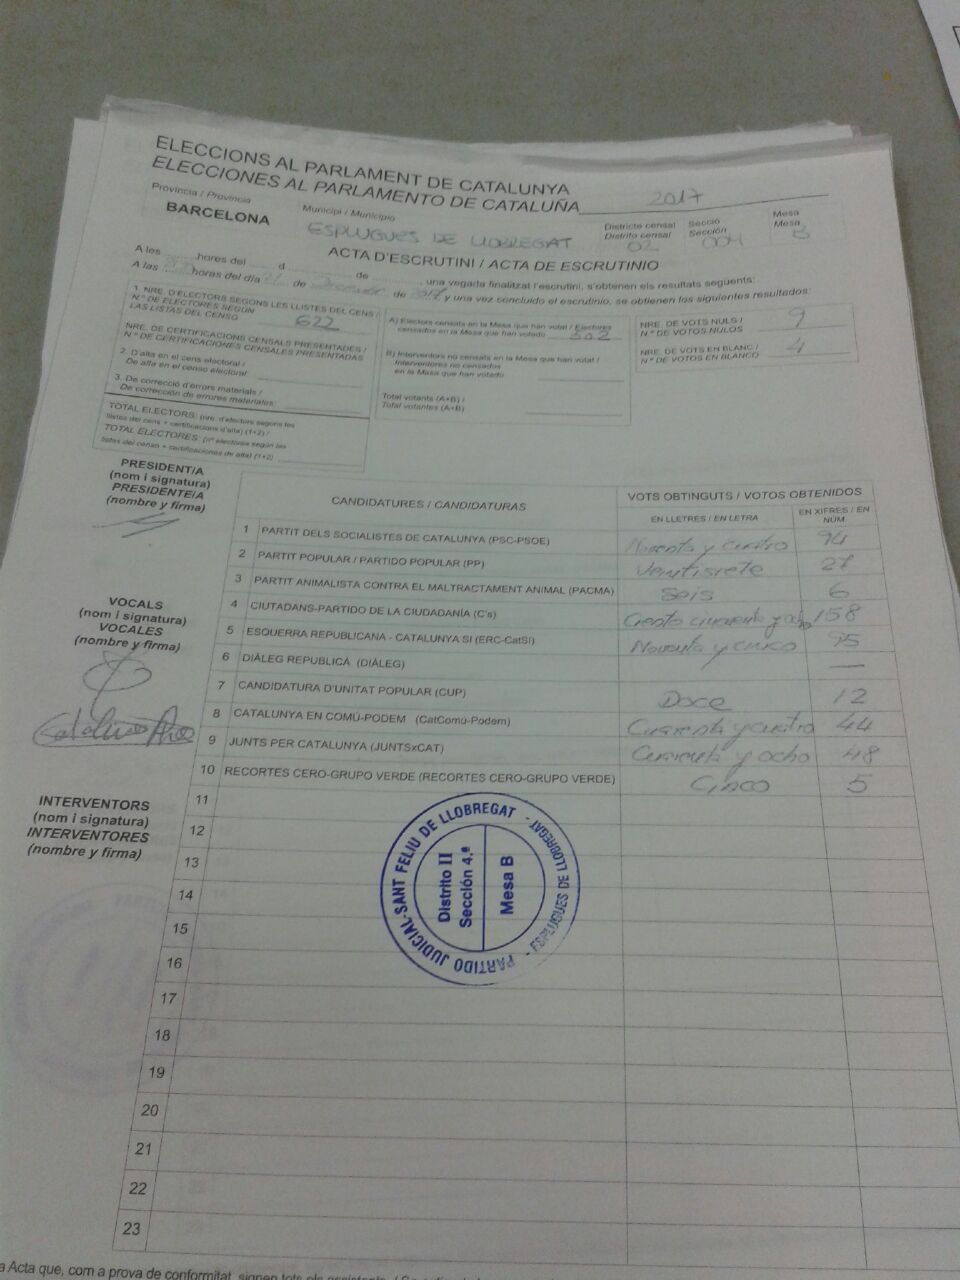 ELECCIONS AL PARLAMENT DE CATALUNYA
ELECCIONES AL PARLAMENTO DE CATALUÑA 2017
Provincia / Provincia
BARCELONA
Municipi / Municipio
ESPLUGUES DE LLOBREGAT
Districte censal
Distrito censal
02
Secció
Sección
004
Mesa
Mesa
B
ACTA D'ESCRUTINI / ACTA DE ESCRUTINIO
A les hores del d de , una vegada finalitzat l'escrutini, s'obtenen els resultats següents:
A las horas del día 21 de Diciembre de 2017 y una vez concluido el escrutinio, se obtienen los siguientes resultados:
1. NRE. D'ELECTORS SEGONS LES LLISTES DEL CENS /
N.º DE ELECTORES SEGÚN
LAS LISTAS DEL CENSO 622
NRE. DE CERTIFICACIONS CENSALS PRESENTADES /
N.º DE CERTIFICACIONES CENSALES PRESENTADAS
2. D'alta en el cens electoral /
De alta en el censo electoral
3. De correcció d'errors materials /
De corrección de errores materiales:
TOTAL ELECTORS: (nre. d'electors segons les
llistes del cens + certificacions d'alta) (1+2) /
TOTAL ELECTORES: (nº electores según las
listas del censo + certificaciones de alta) (1+2)
A) Electors censats en la Mesa que han votat / Electores
censados en la Mesa que han votado 502
B) Interventors no censats en la Mesa que han votat /
Interventores no censados
en la Mesa que han votado
Total votants (A+B) /
Total votantes (A+B)
NRE. DE VOTS NULS /
N.º DE VOTOS NULOS 9
NRE. DE VOTS EN BLANC /
N.º DE VOTOS EN BLANCO 4
PRESIDENT/A
(nom i signatura)
PRESIDENTE/A
(nombre y firma)
VOCALS
(nom i signatura)
VOCALES
(nombre y firma)
INTERVENTORS
(nom i signatura)
INTERVENTORES
(nombre y firma)
CANDIDATURES / CANDIDATURAS
VOTS OBTINGUTS / VOTOS OBTENIDOS
EN LLETRES / EN LETRA
EN XIFRES / EN NÚM.
1 PARTIT DELS SOCIALISTES DE CATALUNYA (PSC-PSOE) Noventa y cuatro 94
2 PARTIT POPULAR / PARTIDO POPULAR (PP) Veintisiete 27
3 PARTIT ANIMALISTA CONTRA EL MALTRACTAMENT ANIMAL (PACMA) Seis 6
4 CIUTADANS-PARTIDO DE LA CIUDADANÍA (C's) Ciento cincuenta y ocho 158
5 ESQUERRA REPUBLICANA - CATALUNYA SÍ (ERC-CatSí) Noventa y cinco 95
6 DIÀLEG REPUBLICÀ (DIÀLEG) —
7 CANDIDATURA D'UNITAT POPULAR (CUP) Doce 12
8 CATALUNYA EN COMÚ-PODEM (CatComú-Podem) Cuarenta y cuatro 44
9 JUNTS PER CATALUNYA (JUNTSxCAT) Cuarenta y ocho 48
10 RECORTES CERO-GRUPO VERDE (RECORTES CERO-GRUPO VERDE) Cinco 5
11
12
13
14
15
16
17
18
19
20
21
22
23
PARTIDO JUDICIAL-SANT FELIU DE LLOBREGAT - ESPLUGUES DE LLOBREGAT -
Distrito II
Sección 4.ª
Mesa B
a Acta que, com a prova de conformitat, signen tots els assistents. /